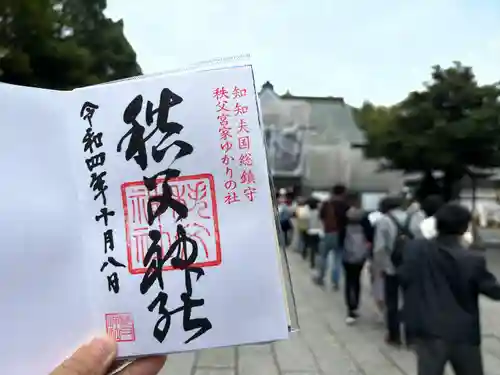 知知夫国総鎮守
秩父宮家ゆかりの社
秩父神社
令和四年十月八日